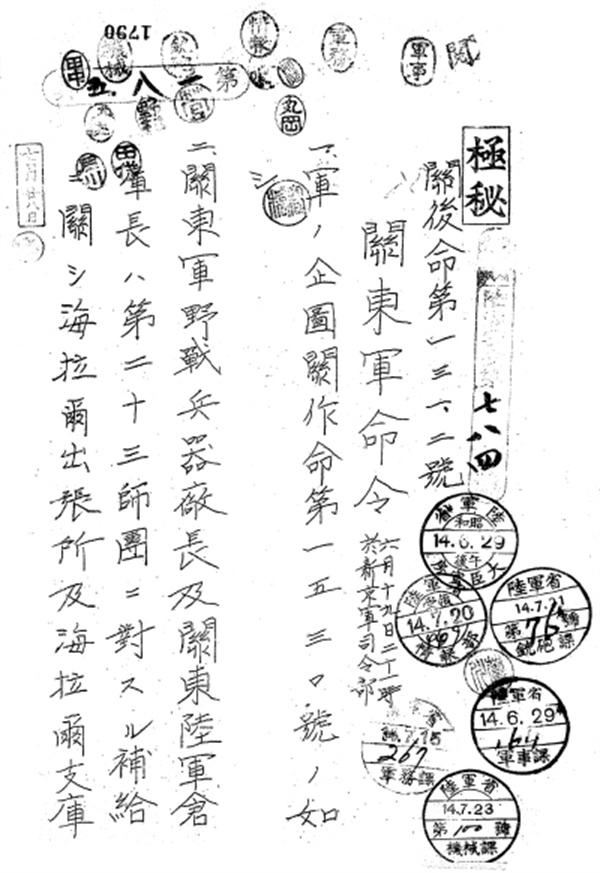 極秘
七八四
關後命第一三一二號
關東軍命令
六月十九日二十一時
於新京軍司令部
一、軍ノ企圖關作命第一五三〇號ノ如
シ
二、關東軍野戰兵器廠長及關東陸軍倉
庫長ハ第二十三師團ニ對スル補給
ニ關シ海拉爾出張所及海拉爾支庫
七月廿八日
第
八
五
1790
閲
軍事
軍務
丸岡
機械
陸軍省
昭和
14.6.29
後午
14.7.20
陸軍省
14.7.21
第76號
銃砲課
陸軍省
14.6.29
軍事課
267
軍務課
陸軍省
14.7.23
第100號
機械課